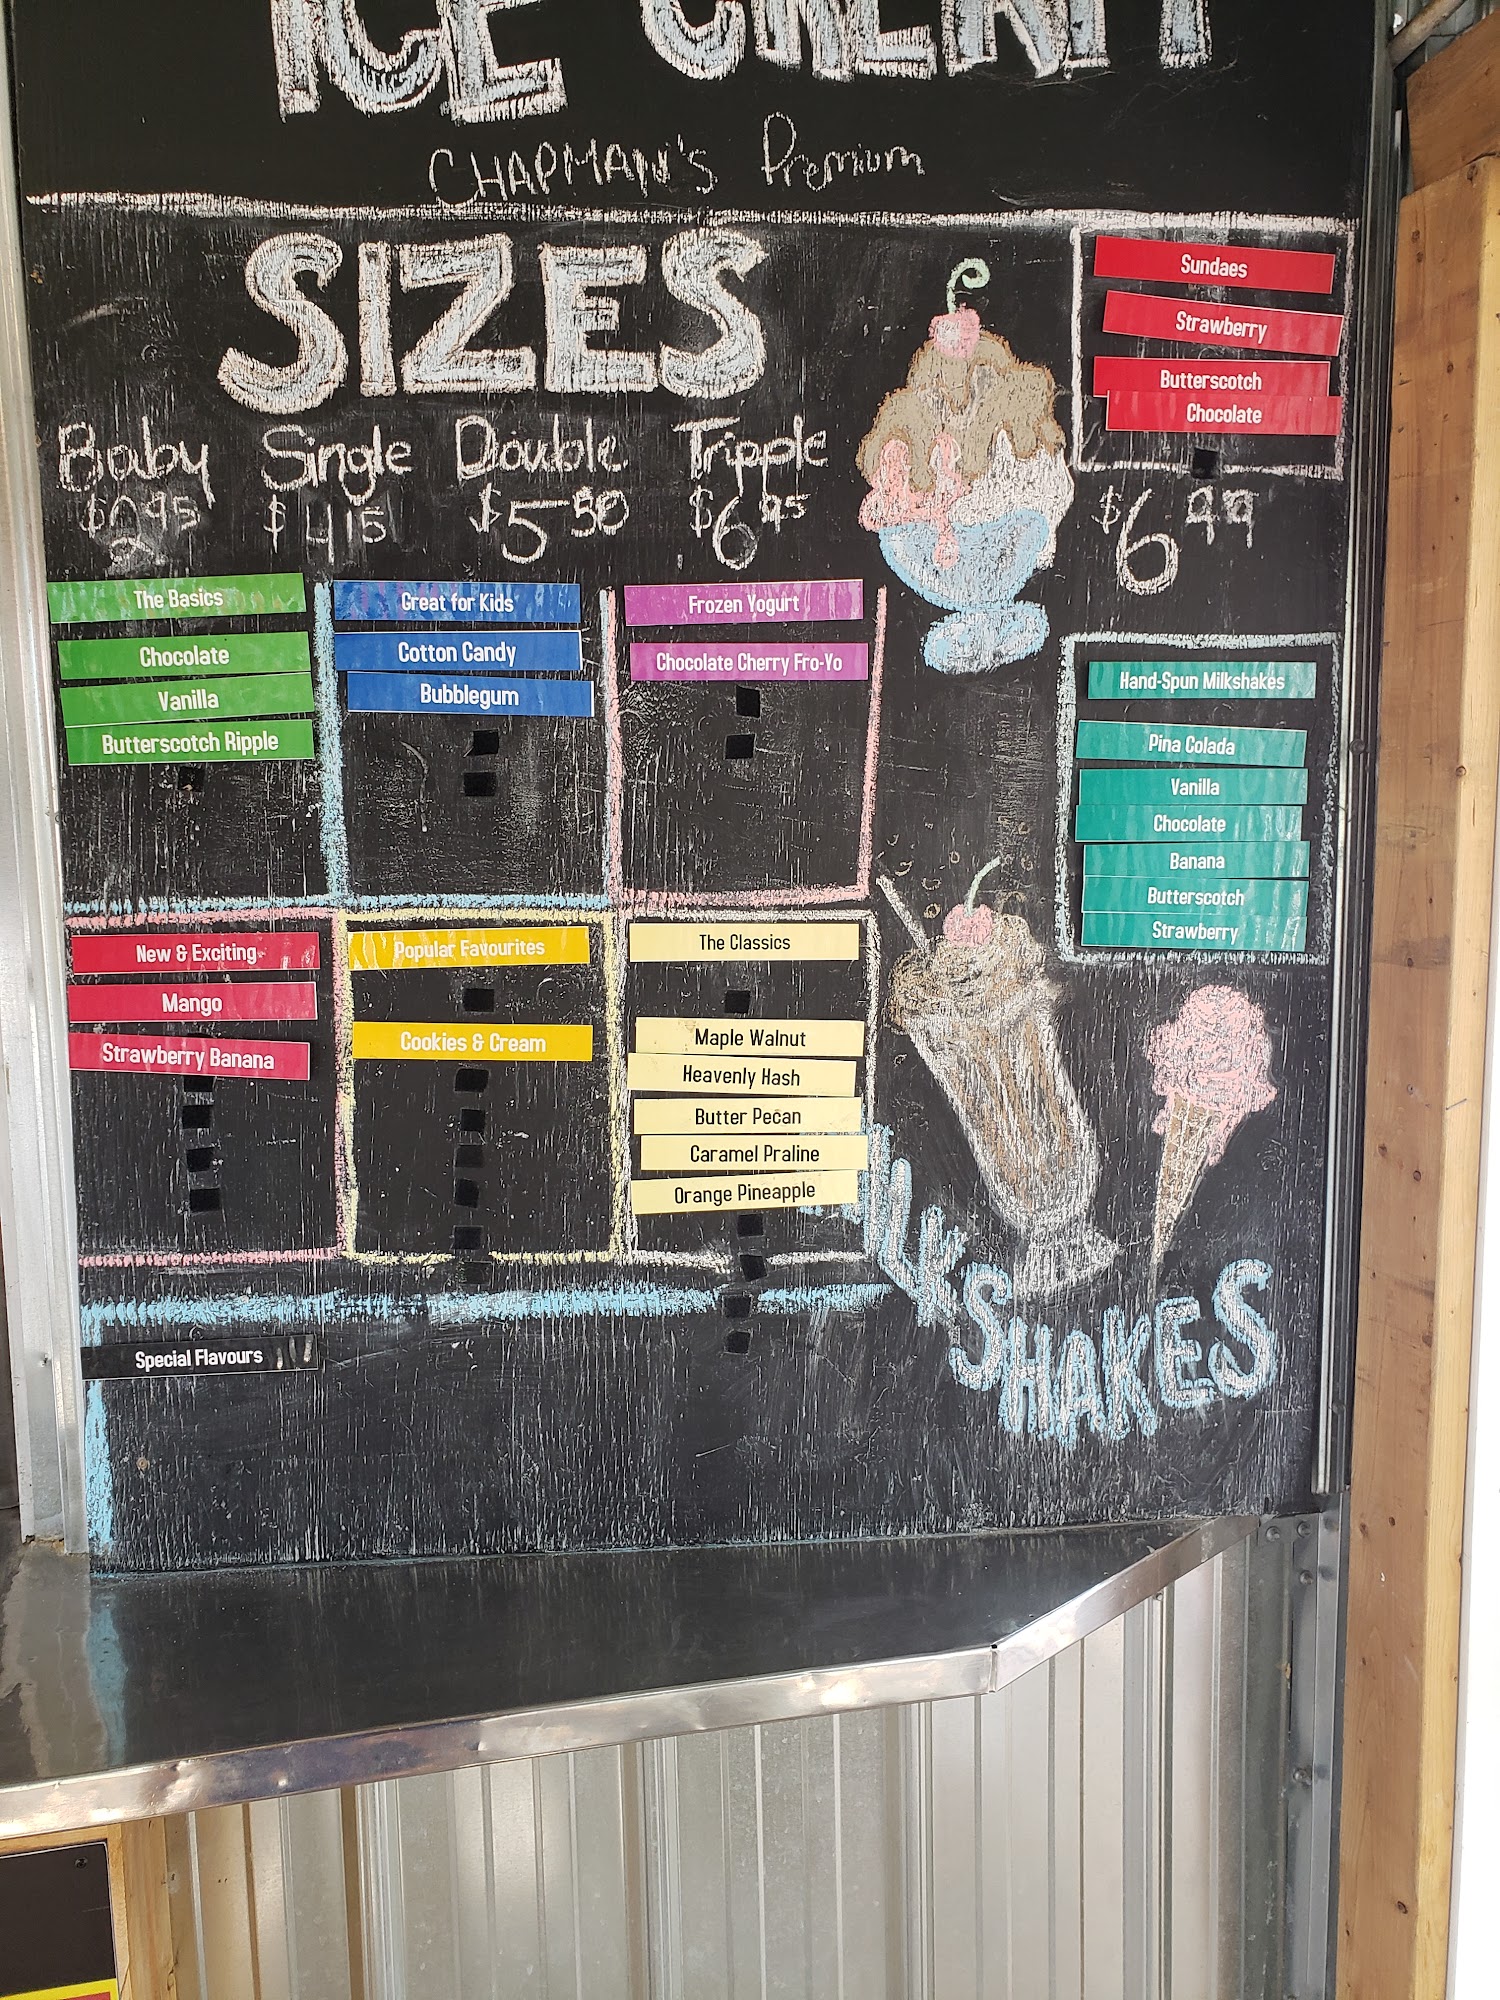 ICE CREAM
CHAPMAN'S Premium
SIZES
Baby Single Double Tripple
$2.95 $4.15 $5.50 $6.95
Sundaes
Strawberry
Butterscotch
Chocolate
$6.99
The Basics
Chocolate
Vanilla
Butterscotch Ripple
Great for Kids
Cotton Candy
Bubblegum
Frozen Yogurt
Chocolate Cherry Fro-Yo
Hand-Spun Milkshakes
Pina Colada
Vanilla
Chocolate
Banana
Butterscotch
Strawberry
New & Exciting
Mango
Strawberry Banana
Popular Favourites
Cookies & Cream
The Classics
Maple Walnut
Heavenly Hash
Butter Pecan
Caramel Praline
Orange Pineapple
MILKSHAKES
Special Flavours